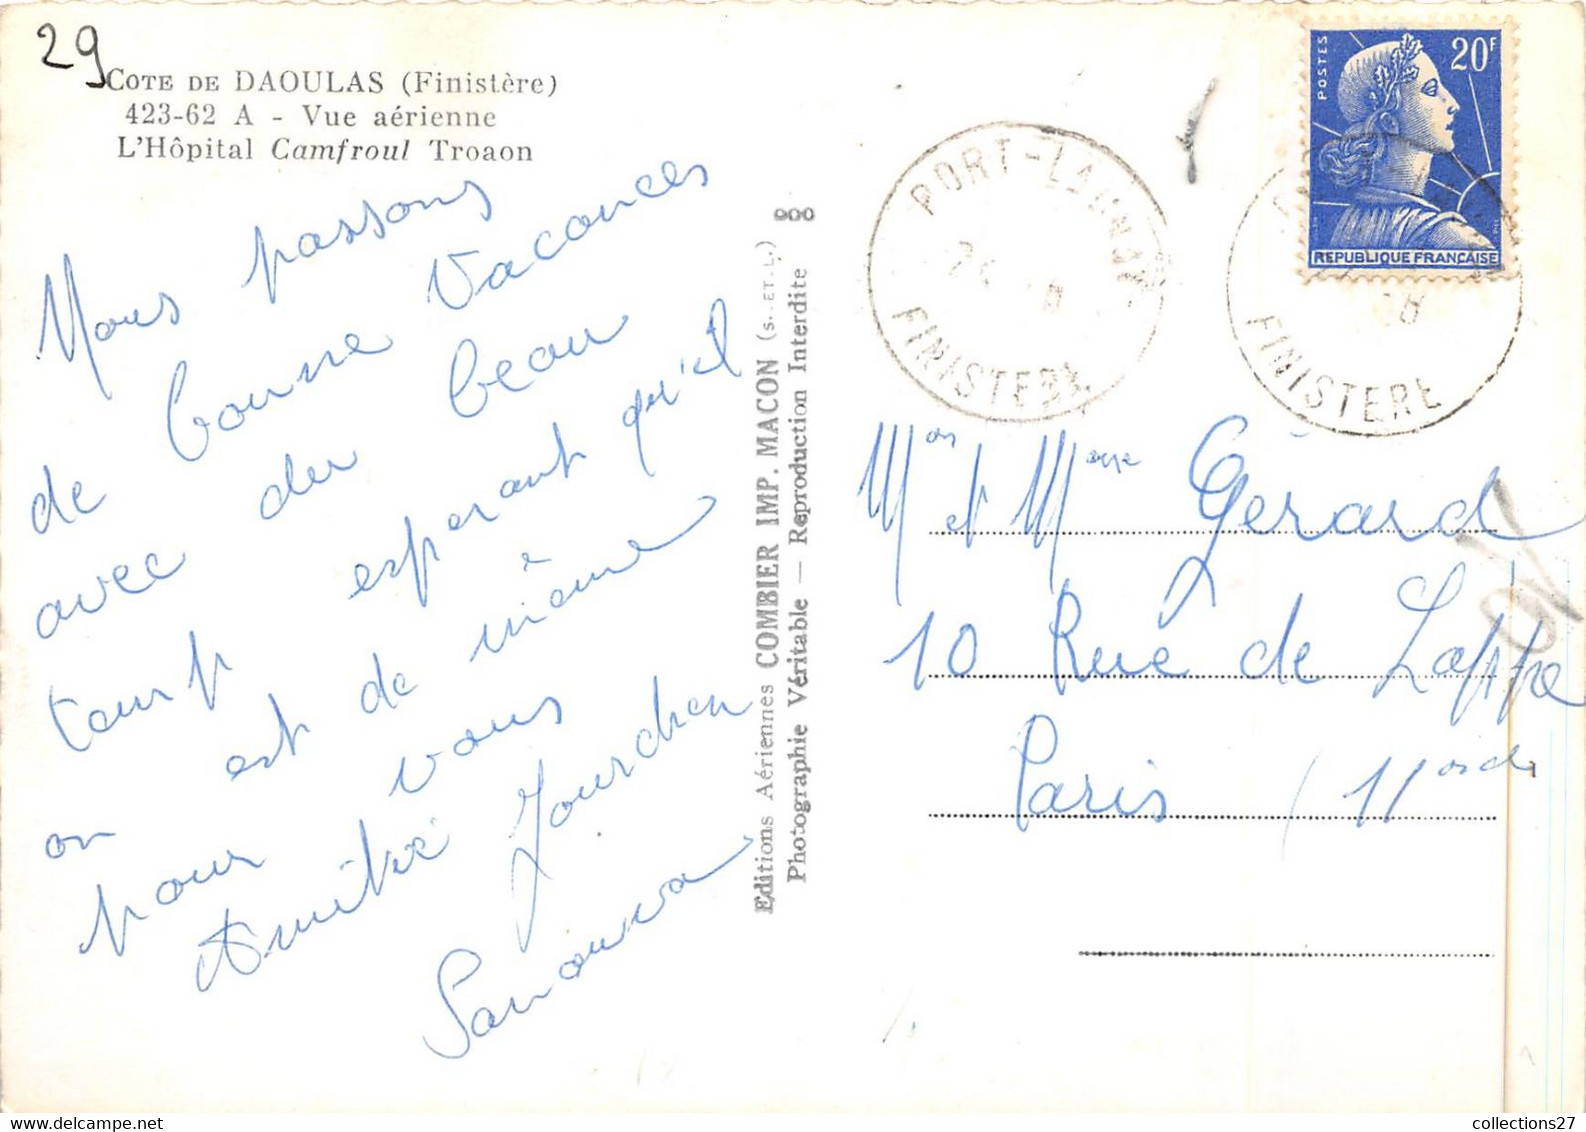 29
COTE DE DAOULAS (Finistère)
423-62 A - Vue aérienne
L'Hôpital Camfroul Troaon
Nous passons
de bonne Vacances
avec du beau
temp esperant qu'il
on est de même
pour vous
Amitié Jourdren
Editions Aériennes COMBIER IMP. MACON (S. ET L.)
Photographie Véritable — Reproduction Interdite
PORT-LAUNAY
FINISTERE
POSTES
20F
REPUBLIQUE FRANÇAISE
FINISTERE
Mon et Mme Gérard
10 Rue de Lappe
Paris (11
collections27